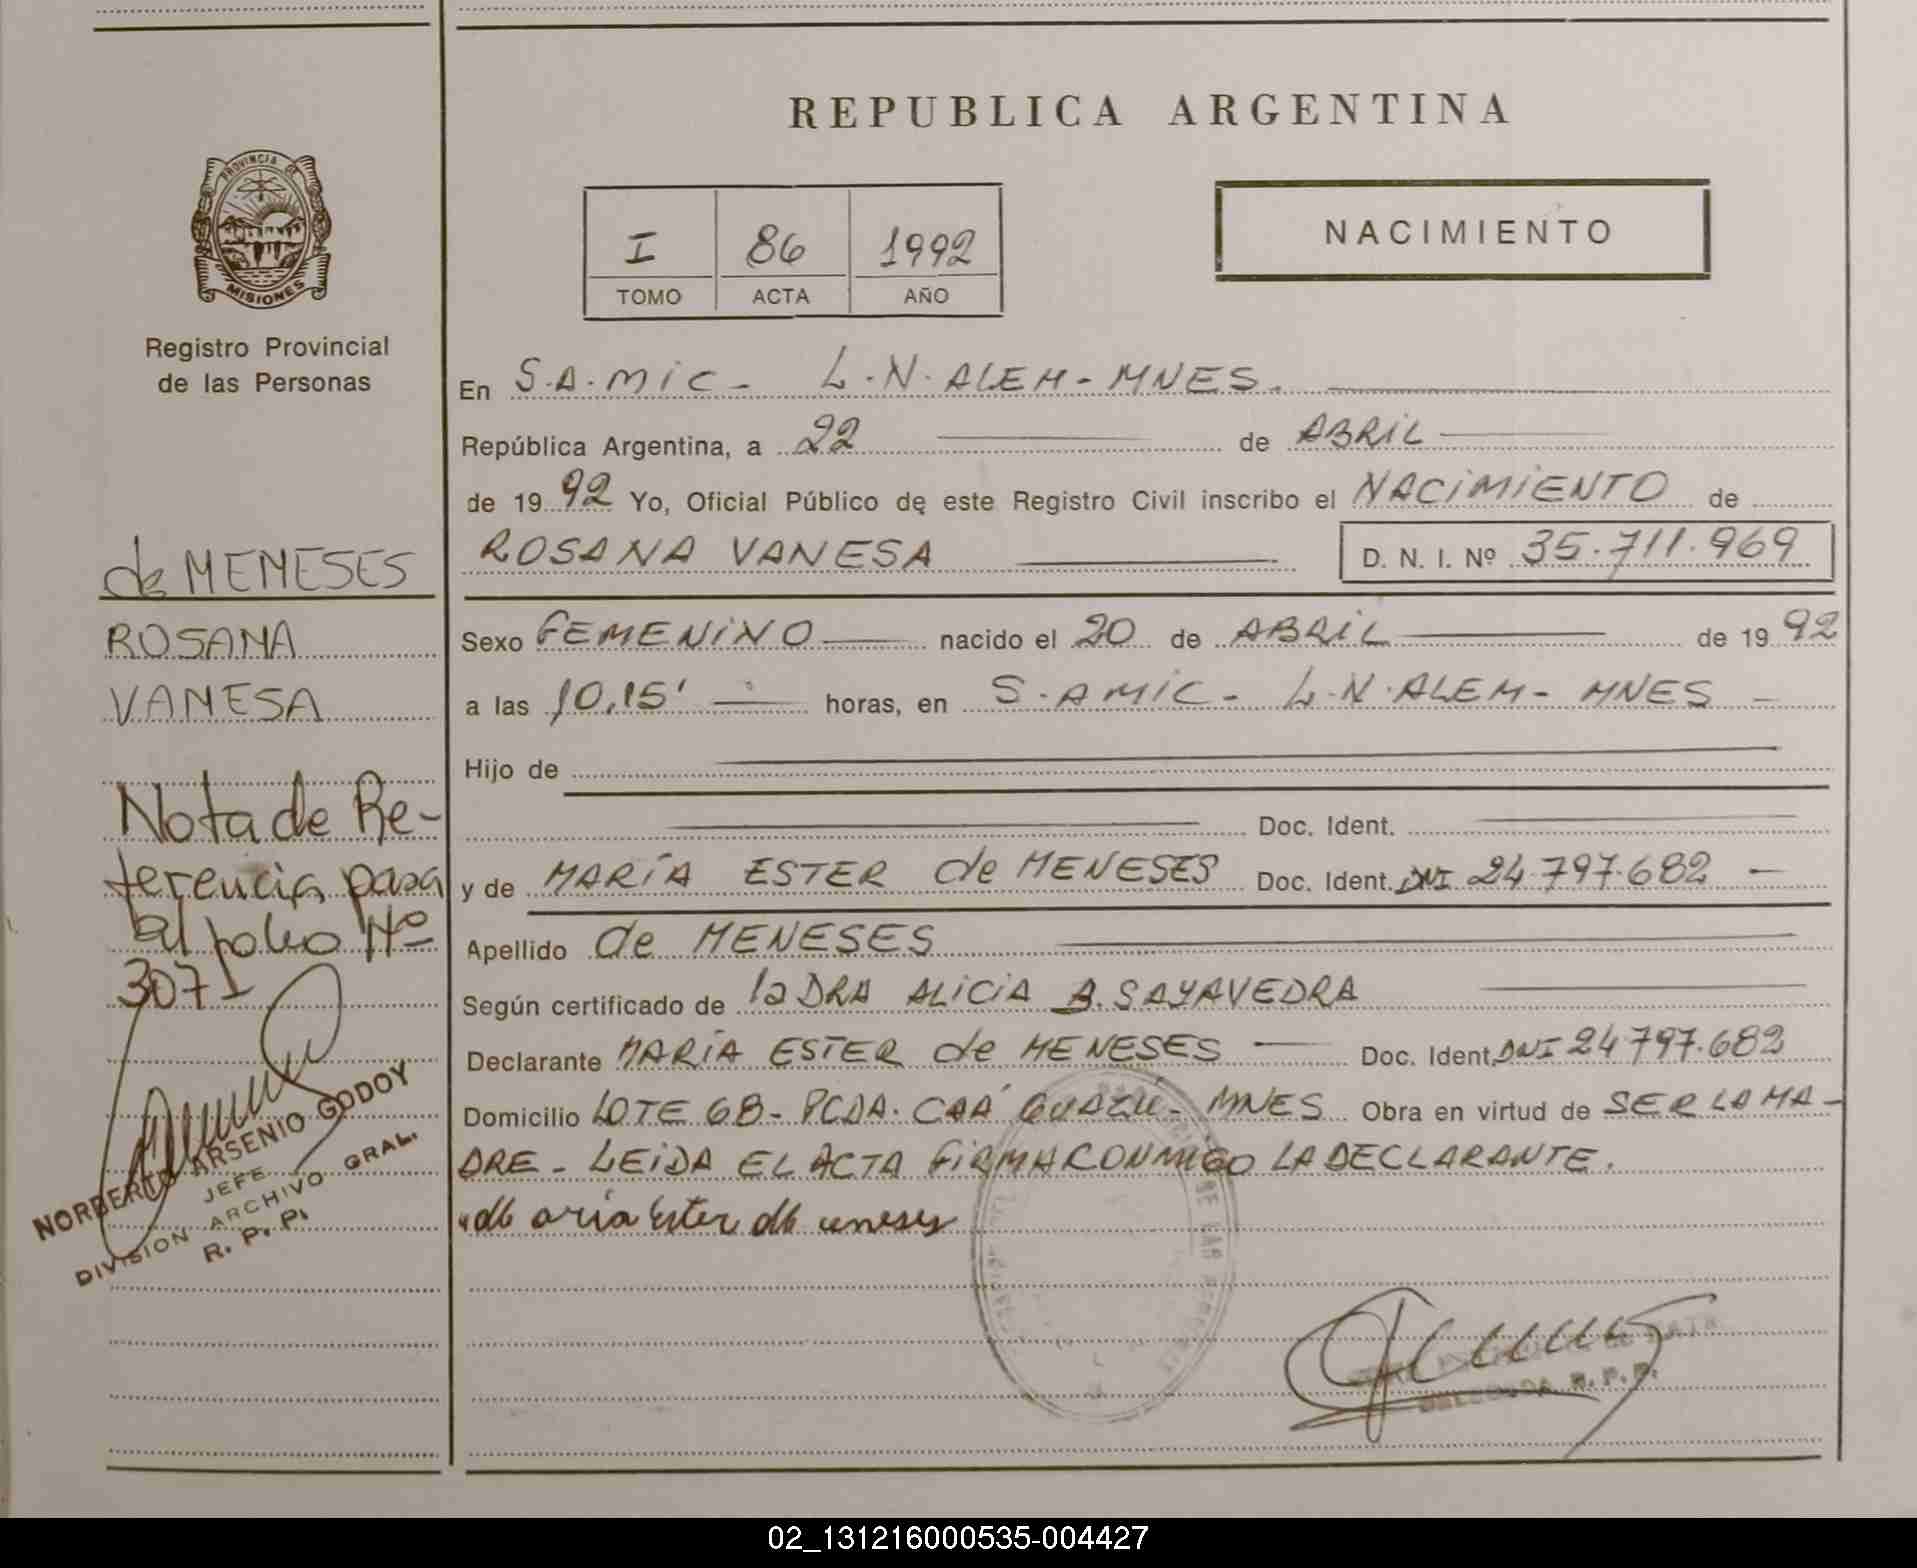 REPUBLICA ARGENTINA
PROVINCIA DE
MISIONES
Registro Provincial
de las Personas
I 86 1992
TOMO ACTA AÑO
NACIMIENTO
En S.A.MIC - L.N.ALEM - MNES.
República Argentina, a 22 de ABRIL
de 1992 Yo, Oficial Público de este Registro Civil inscribo el NACIMIENTO de
ROSANA VANESA D. N. I. Nº 35.711.969
de MENESES
ROSANA
VANESA
Nota de Re-
ferencia pasa
al folio Nº
307 I
NORBERTO ARSENIO GODOY
JEFE
DIVISION ARCHIVO GRAL.
R. P. P.
Sexo FEMENINO nacido el 20 de ABRIL de 1992
a las 10,15' horas, en S.AMIC - L.N.ALEM - MNES -
Hijo de
Doc. Ident.
y de MARÍA ESTER de MENESES Doc. Ident. DNI 24.797.682 -
Apellido de MENESES
Según certificado de la DRA ALICIA B. SAYAVEDRA
Declarante MARÍA ESTER de MENESES Doc. Ident. DNI 24797.682
Domicilio LOTE 68 - PCDA. CAÁ GUAZÚ - MNES Obra en virtud de SER LA MA-
DRE - LEIDA EL ACTA FIRMA CONMIGO LA DECLARANTE.
DELEGADA R.P.P.
02_131216000535-004427